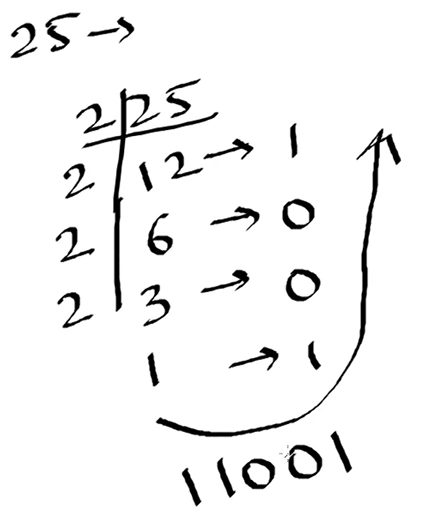 25→
2 25
2 12→ 1
2 6 → 0
2 3 → 0
1 → 1
11001